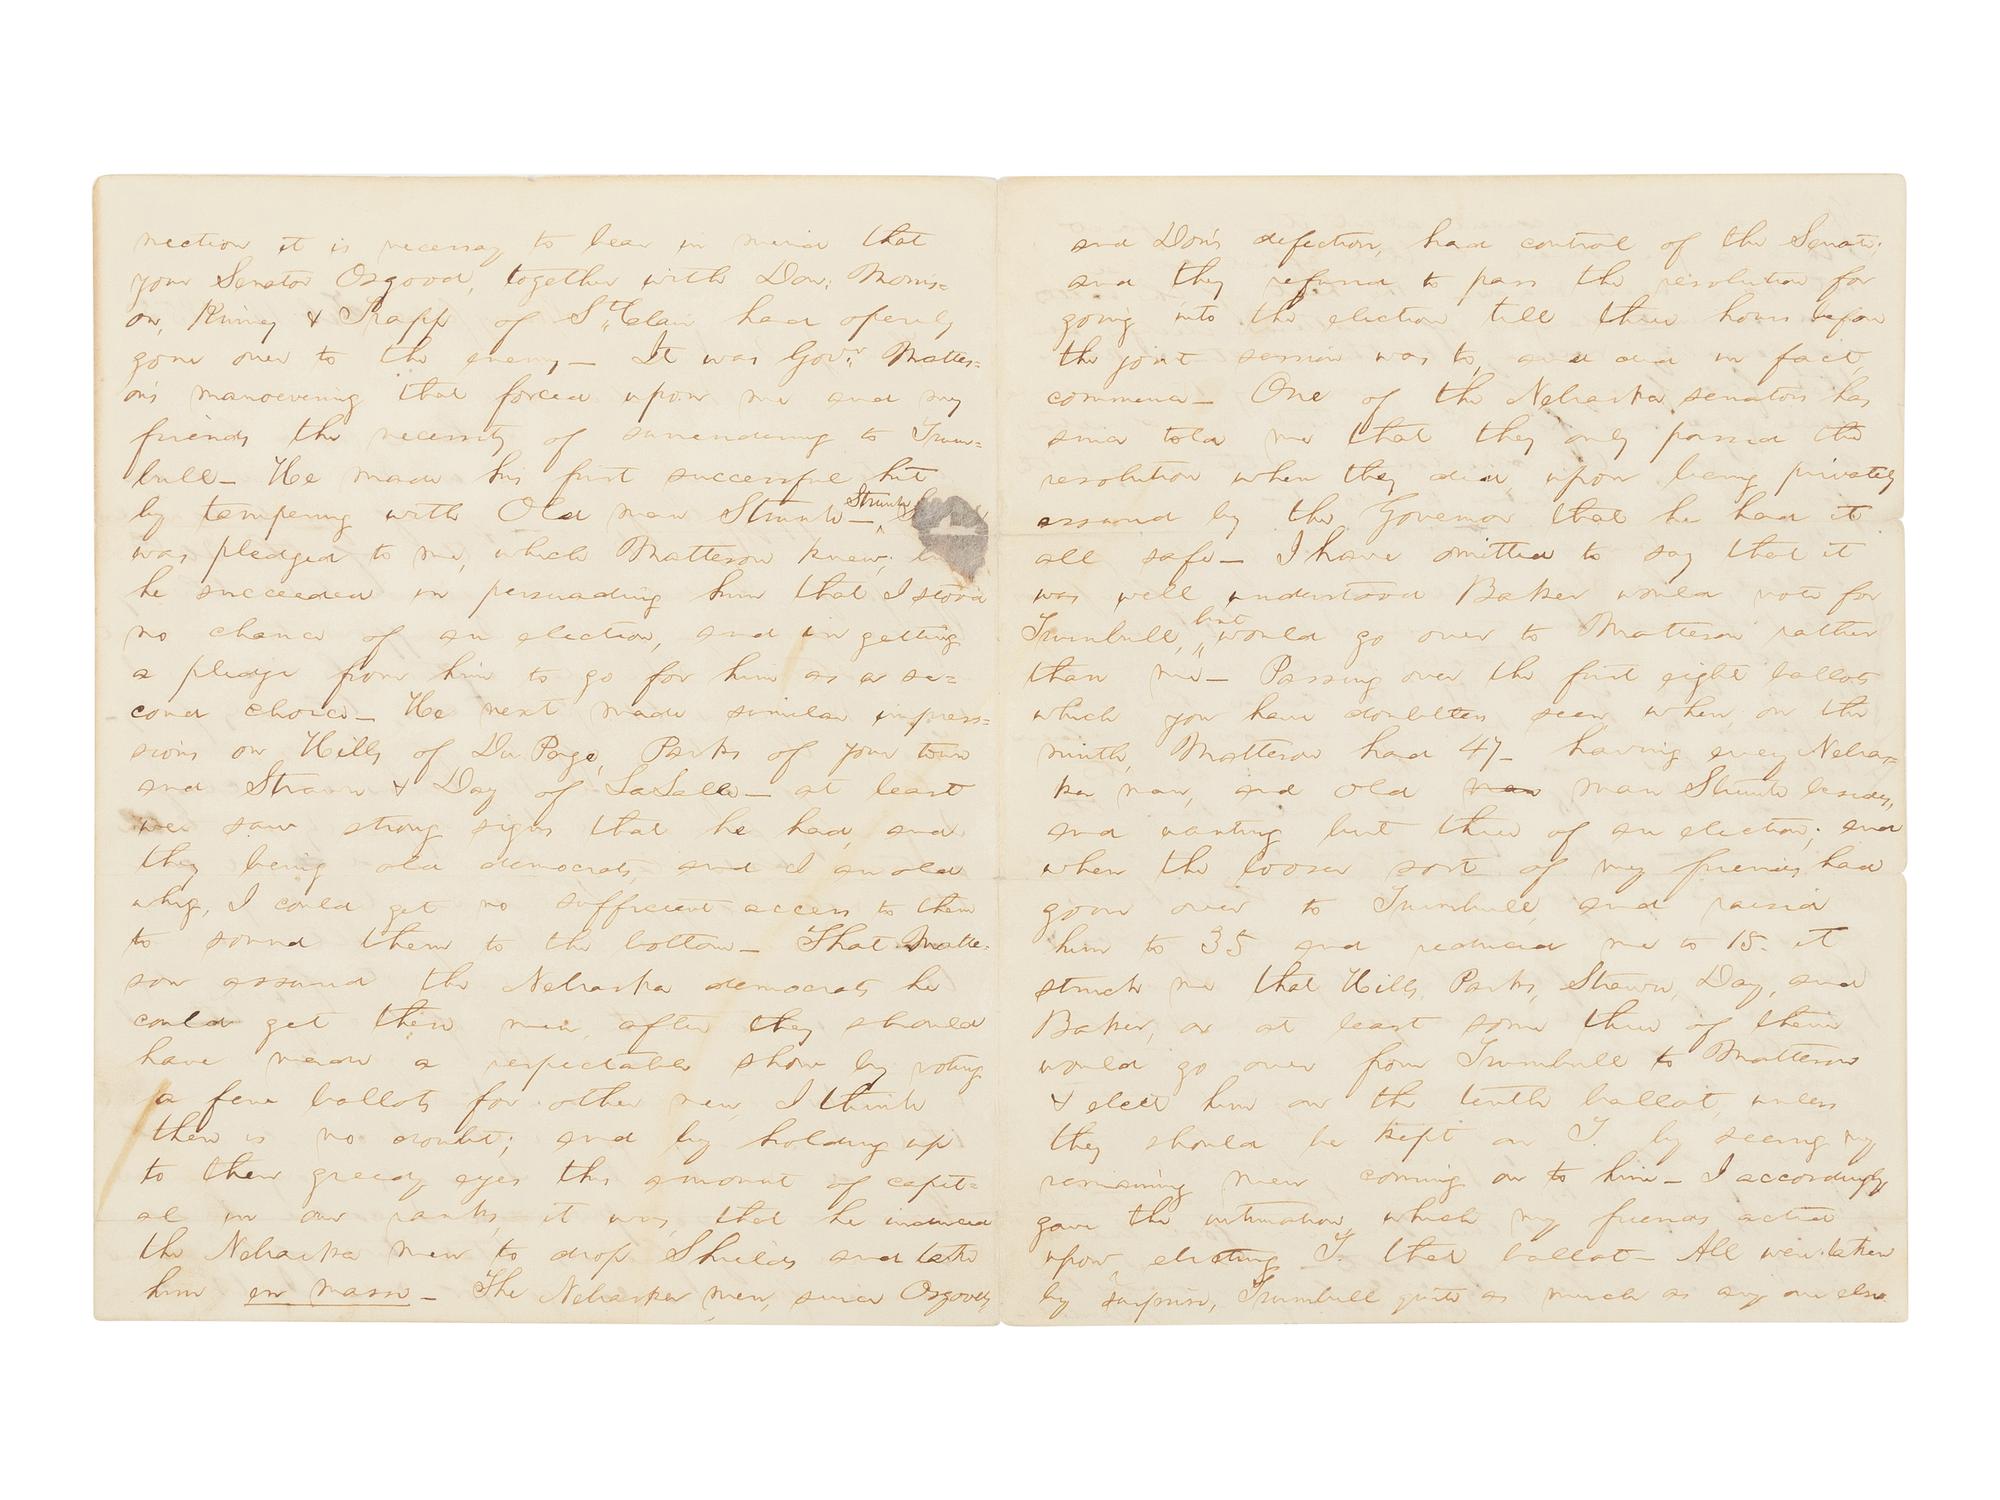 nection it is necessary to bear in mind that
your Senator Osgood, together with Don: Morris=
on, Kinney & Trapp of St Clair had openly
gone over to the enemy— It was Govr. Mattes=
on's manoevering that forced upon me and my
friends the necessity of surrendering to Trum=
bull— He made his first successful hit
by tampering with Old man Strunk— Strunk
was pledged to me, which Matteson knew;
he succeeded in persuading him that I stood
no chance of an election, and in getting
a pledge from him to go for him as a se=
cond choice— He next made similar impress=
sions on Hills of Du Page, Parks of your town
and Strawn & Day of LaSalle— at least
we saw strong signs that he had, and
they being old democrats, and I an old
whig, I could get no sufficient access to them
to sound them to the bottom— That Matte=
son assured the Nebraska democrats he
could get their men, after they should
have made a respectable show by voting
a few ballots for other men, I think
there is no doubt; and by holding up
to their greedy eyes this amount of capit=
al in our ranks, it was, that he induced
the Nebraska men to drop Shields and take
him en masse— The Nebraska men, since Osgood's
and Don's defection, had control of the Senate;
and they refused to pass the resolution for
going into the election till three hours before
the joint session was to, and did in fact,
commence— One of the Nebraska senators has
since told me that they only passed the
resolution when they did upon being privately
assured by the Governor that he had it
all safe— I have omitted to say that it
was well understood Baker would vote for
Trumbull, but would go over to Matteson rather
than me— Passing over the first eight ballots
which you have doubtless seen, when, on the
ninth, Matteson had 47— having every Nebras=
ka man, and old man man Strunk besides,
and wanting but three of an election; and
when the looser sort of my friends had
gone over to Trumbull, and raised
him to 35 and reduced me to 15. it
struck me that Hills, Parks, Strawn, Day, and
Baker, or at least some three of them
would go over from Trumbull to Matteson
& elect him on the tenth ballot, unless
they should be kept on T. by seeing my
remaining men coming on to him— I accordingly
gave the intimation, which my friends acted
upon, electing T. that ballot— All were taken
by surprise, Trumbull quite as much as any one else